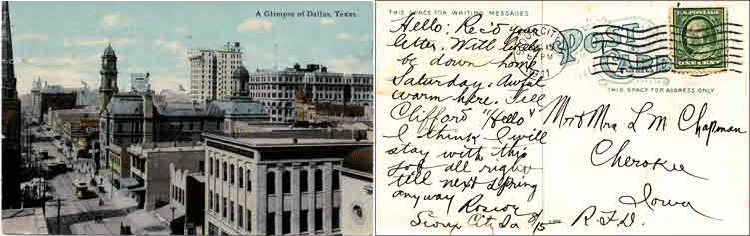 A Glimpse of Dallas, Texas.
THIS SPACE FOR WRITING MESSAGES
POST CARD
THIS SPACE FOR ADDRESS ONLY
Hello: Rec'd your
letter. Will likely
be down home
Saturday. Awful
warm here. Tell
Clifford "Hello"
I think I will
stay with this
job all right
till next spring
anyway Roscoe
Sioux City Ia 8/15
SIOUX CITY
15
PM
1911
Mr & Mrs L M Chapman
Cherokee
Iowa
R.F.D.